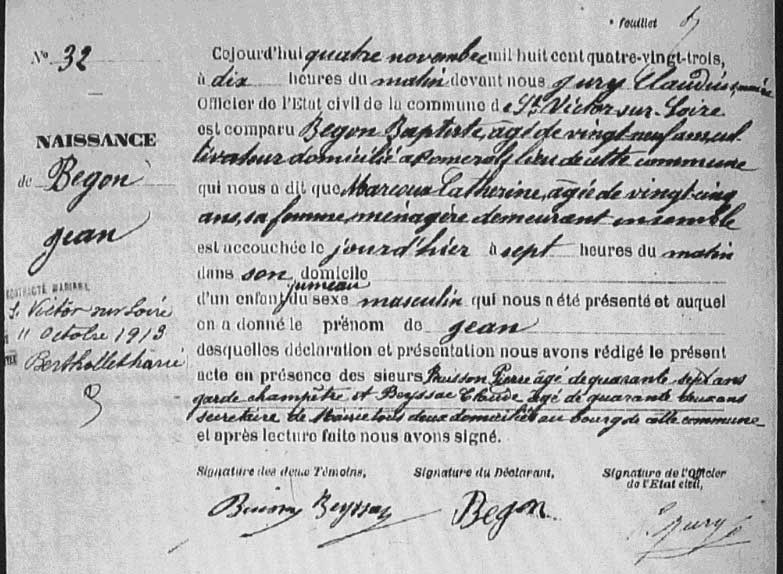 Feuillet 5
N° 32
NAISSANCE
de Begon
jean
CONTRACTÉ MARIAGE
St Victor sur Loire
11 Octobre 1913
Berthollet Marie
Cejourd'hui quatre novembre mil huit cent quatre-vingt-trois,
à dix heures du matin devant nous jury Claudius, maire
Officier de l'Etat civil de la commune de St Victor-sur-Loire
est comparu Begon Baptiste, agé de vingt neuf ans, cul
tivateur domicilié à Pomerols lieu de cette commune
qui nous a dit que Marcoux Catherine, agée de vingt cinq
ans, sa femme, ménagère demeurant ensemble
est accouchée le jourd'hier à sept heures du matin
dans son domicile
d'un enfant jumeau du sexe masculin qui nous a été présenté et auquel
on a donné le prénom de jean
desquelles déclaration et présentation nous avons rédigé le présent
acte en présence des sieurs Buisson Pierre âgé de quarante sept ans
garde champêtre et Beyssac Claude âgé de quarante deux ans
secrétaire de Mairie tous deux domiciliés au bourg de cette commune
et après lecture faite nous avons signé.
Signature des deux Témoins, Signature du Déclarant, Signature de l'Officier
de l'Etat civil,
Buisson Beyssac Begon jury